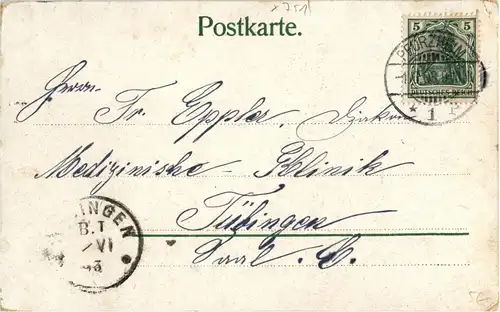 x 751
Postkarte.
5 5
PFORZHEIM
DEUTSCHES REICH
* 1 *
Herrn
Fr. Eppler, Diakon
Medizinische Klinik
Tübingen
Saal
INGEN
B.T
VI
5